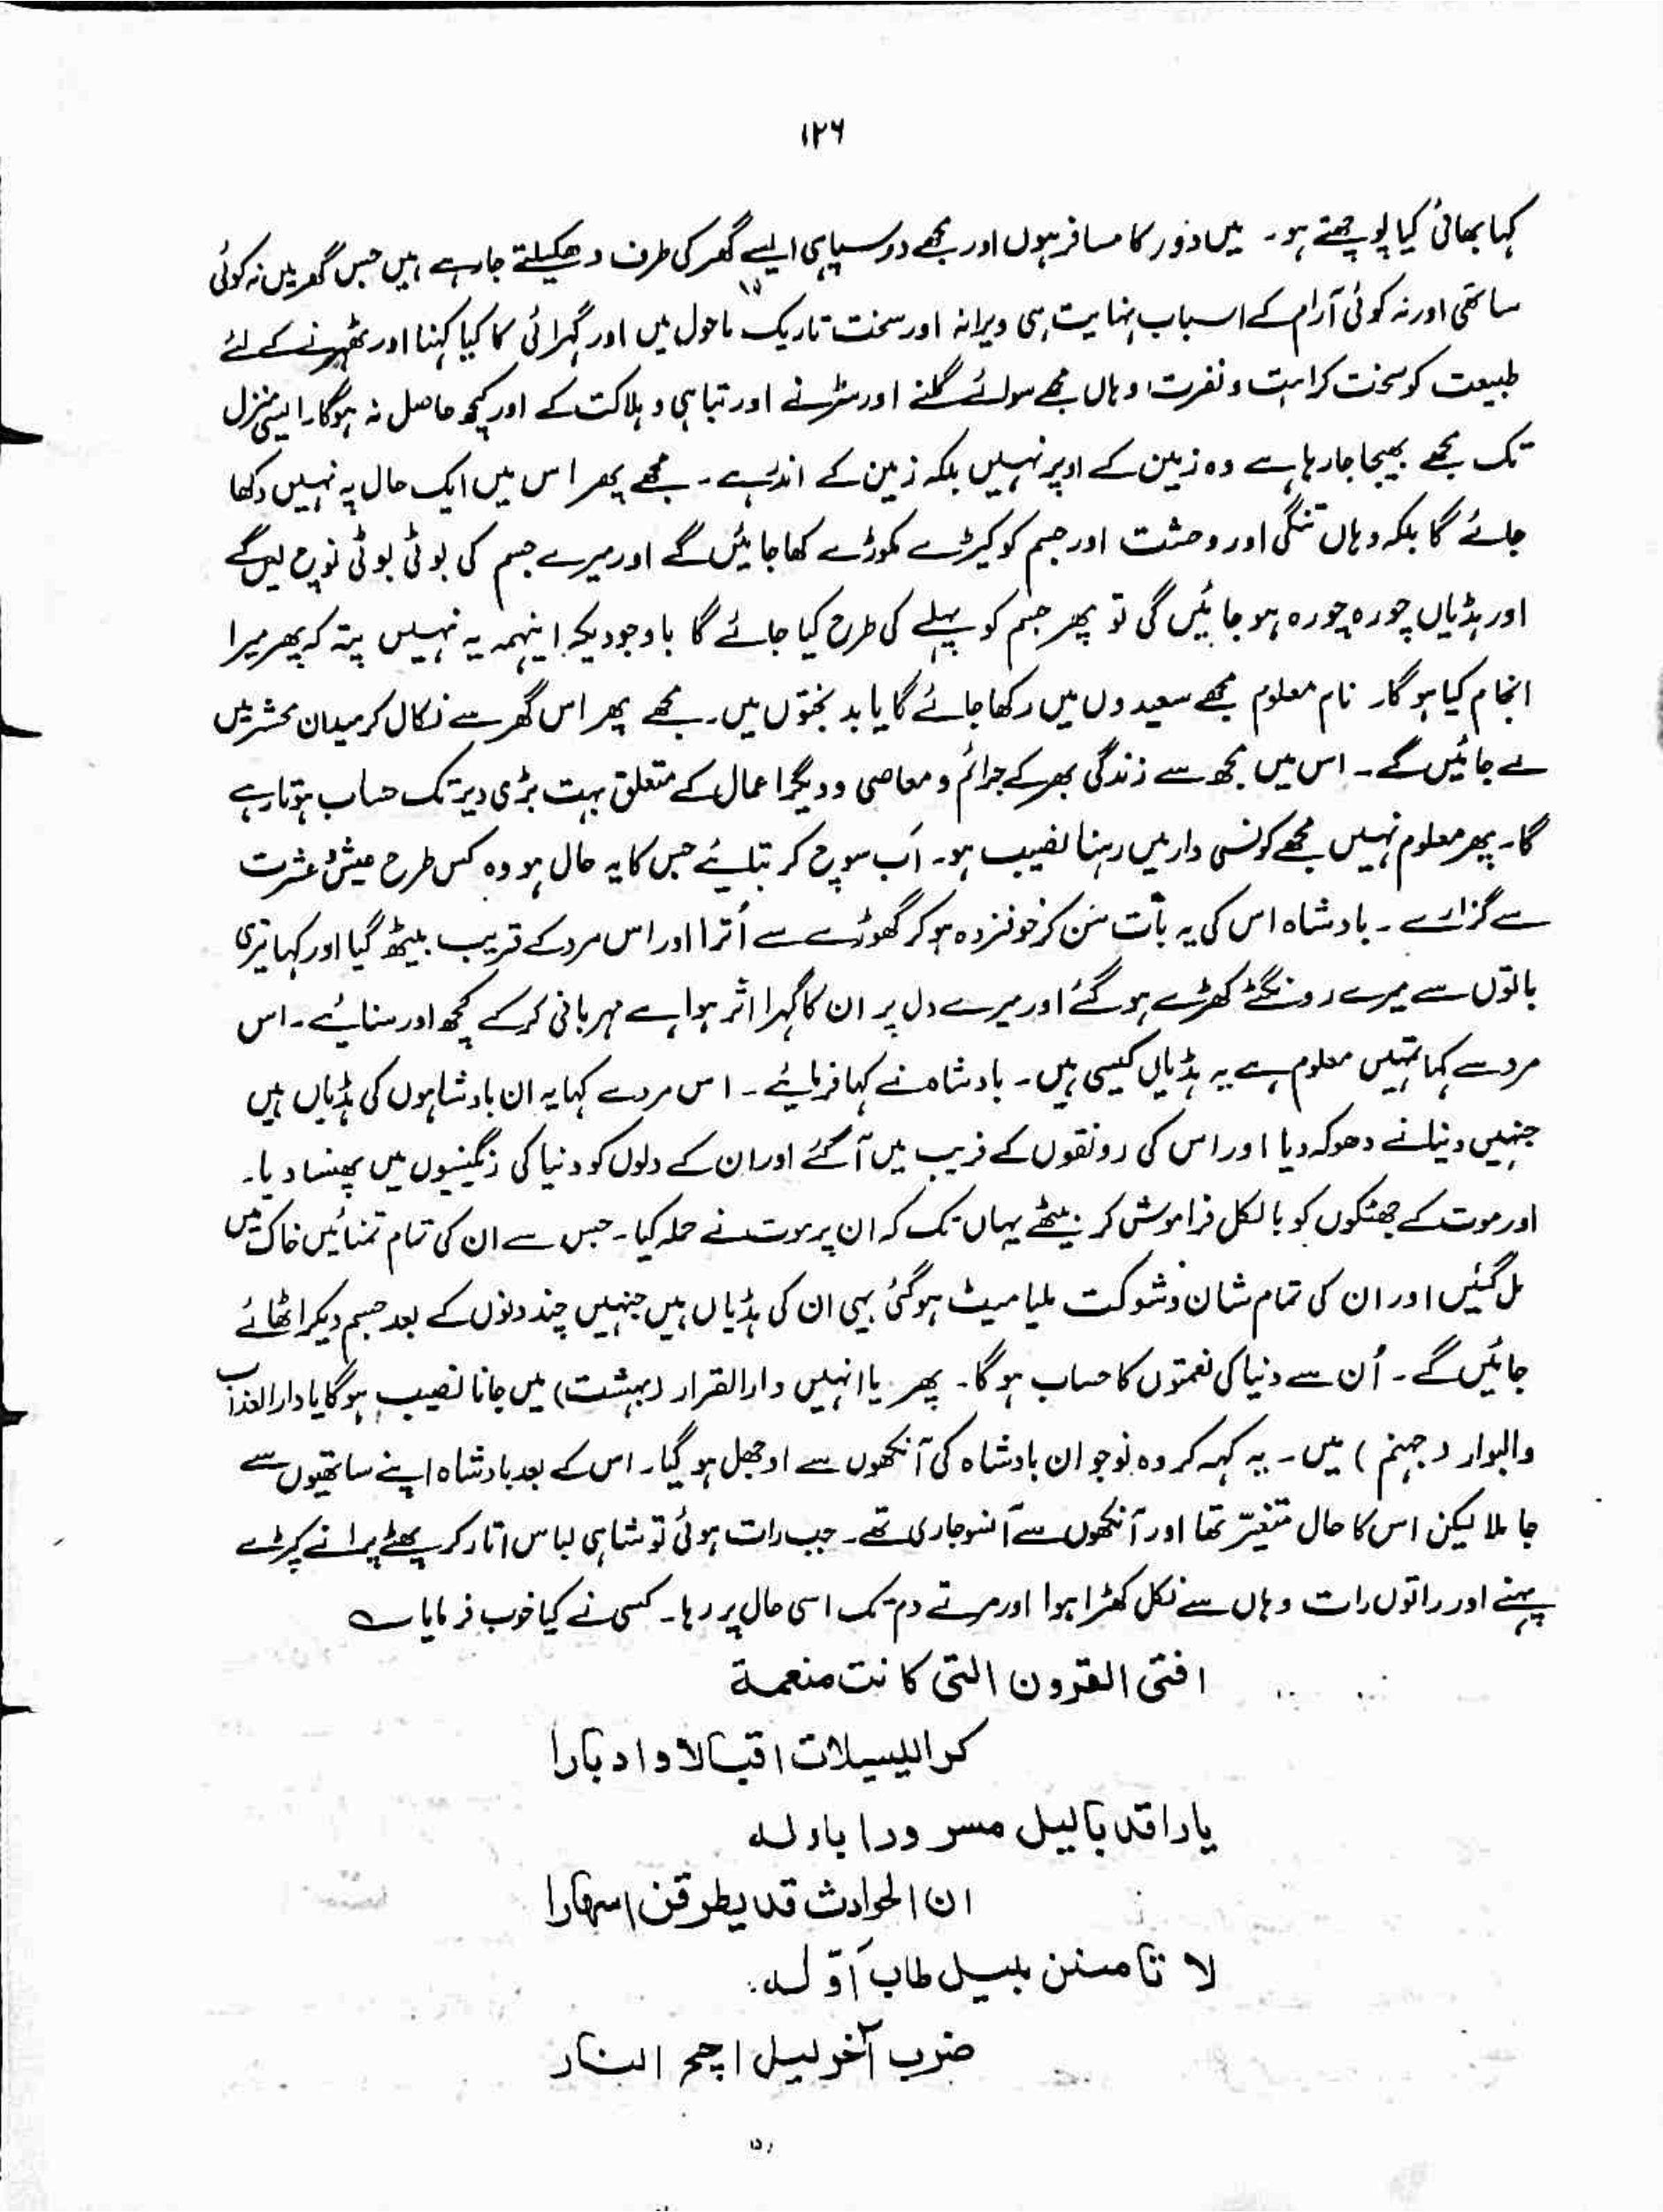 ۱۲۶
کہا بھائی کیا پوچھتے ہو۔ میں دور کا مسافر ہوں اور مجھے دو سپاہی ایسے گھر کی طرف دھکیلتے جا رہے ہیں جس گھر میں نہ کوئی
ساتھی اور نہ کوئی آرام کے اسباب نہایت ہی ویرانہ اور سخت تاریک ماحول میں اور گہرائی کا کیا کہنا اور ٹھہرنے کے لئے
طبیعت کو سخت کراہت و نفرت وہاں مجھے سوائے گلنے اور سڑنے اور تباہی و ہلاکت کے اور کچھ حاصل نہ ہوگا۔ ایسی منزل
تک مجھے بھیجا جا رہا ہے وہ زمین کے اوپر نہیں بلکہ زمین کے اندر ہے۔ مجھے پھر اس میں ایک حال پہ نہیں رکھا
جائے گا بلکہ وہاں تنگی اور وحشت اور جسم کو کیڑے مکوڑے کھا جائیں گے اور میرے جسم کی بوٹی بوٹی نوچ لیں گے
اور ہڈیاں چورہ چورہ ہو جائیں گی تو پھر جسم کو پہلے کی طرح کیا جائے گا باوجودیکہ اینہمہ یہ نہیں پتہ کہ پھر میرا
انجام کیا ہوگا۔ نام معلوم مجھے سعیدوں میں رکھا جائے گا یا بدبختوں میں۔ مجھے پھر اس گھر سے نکال کر میدان محشر میں
لے جائیں گے۔ اس میں مجھ سے زندگی بھر کے جرائم و معاصی و دیگر اعمال کے متعلق بہت بڑی دیر تک حساب ہوتا رہے
گا۔ پھر معلوم نہیں مجھے کونسی دار میں رہنا نصیب ہو۔ اَب سوچ کر بتلائیے جس کا یہ حال ہو وہ کس طرح عیش و عشرت
سے گزارے۔ بادشاہ اس کی یہ بات سُن کر خوفزدہ ہو کر گھوڑے سے اُترا اور اس مرد کے قریب بیٹھ گیا اور کہا تیری
باتوں سے میرے رونگٹے کھڑے ہوگئے اور میرے دل پر ان کا گہرا اثر ہوا ہے مہربانی کرکے کچھ اور سنائیے۔ اس
مرد سے کہا تمہیں معلوم ہے یہ ہڈیاں کیسی ہیں۔ بادشاہ نے کہا فرمائیے۔ اس مرد نے کہا یہ ان بادشاہوں کی ہڈیاں ہیں
جنہیں دنیا نے دھوکہ دیا اور اس کی رونقوں کے فریب میں آ گئے اور ان کے دلوں کو دنیا کی رنگینیوں میں پھنسا دیا۔
اور موت کے جھٹکوں کو بالکل فراموش کر بیٹھے یہاں تک کہ ان پر موت نے حملہ کیا۔ جس سے ان کی تمام تمنائیں خاک میں
مل گئیں اور ان کی تمام شان و شوکت ملیا میٹ ہوگئی یہی ان کی ہڈیاں ہیں جنہیں چند دنوں کے بعد جسم دیکر اٹھائے
جائیں گے۔ اُن سے دنیا کی نعمتوں کا حساب ہوگا۔ پھر یا انہیں دار القرار (بہشت) میں جانا نصیب ہوگا یا دار العذاب
والبوار (جہنم) میں۔ یہ کہہ کر وہ نوجوان بادشاہ کی آنکھوں سے اوجھل ہو گیا۔ اس کے بعد بادشاہ اپنے ساتھیوں سے
جا ملا لیکن اس کا حال متغیّر تھا اور آنکھوں سے آنسو جاری تھے۔ جب رات ہوئی تو شاہی لباس اتار کر پھٹے پرانے کپڑے
پہنے اور راتوں رات وہاں سے نکل کھڑا ہوا اور مرتے دم تک اسی حال پر رہا۔ کسی نے کیا خوب فرمایا ؎
افتی القرون التی کانت منعمة
کر اللیلات اقبالا و ادبارا
یا راقد باللیل مسرورا باوله
ان الحوادث قد یطرقن اسهارا
لا تامنن بلیل طاب اوّله
ضرب آخر لیل اجج النار